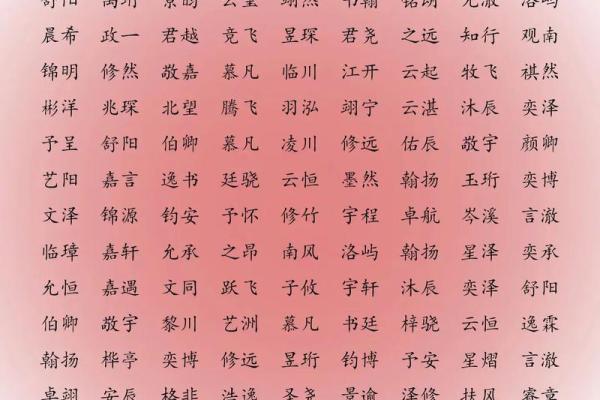 舒阳 禹珩 景昀 云玺 翊然 书翰 铭朗 允澈 洛屿
晨希 政一 君越 竞飞 昱琛 君尧 之远 知行 观南
锦明 修然 敬嘉 慕凡 临川 江开 云起 牧飞 祺然
彬洋 兆琛 北望 腾飞 羽泓 翊宁 云湛 沐辰 奕泽
予呈 舒阳 伯卿 慕凡 凌川 修远 佑辰 敬宇 颜卿
艺阳 嘉言 逸书 廷骁 云恒 墨然 翰扬 玉珩 奕博
文泽 锦源 钧安 予怀 修竹 宇程 卓航 岑溪 言澈
临璋 嘉轩 允承 之昂 南风 洛屿 翰扬 星泽 奕承
允恒 嘉遇 文同 跃飞 子攸 宇轩 沐辰 奕泽 舒阳
伯卿 敬宇 黎川 艺洲 慕凡 书廷 梓骁 云恒 逸霖
翰扬 桦亭 奕博 修远 昱珩 钧博 予安 星熠 言澈
卓翊 安辰 格非 浩逸 圣尧 景谕 泽修 扶风 睿章